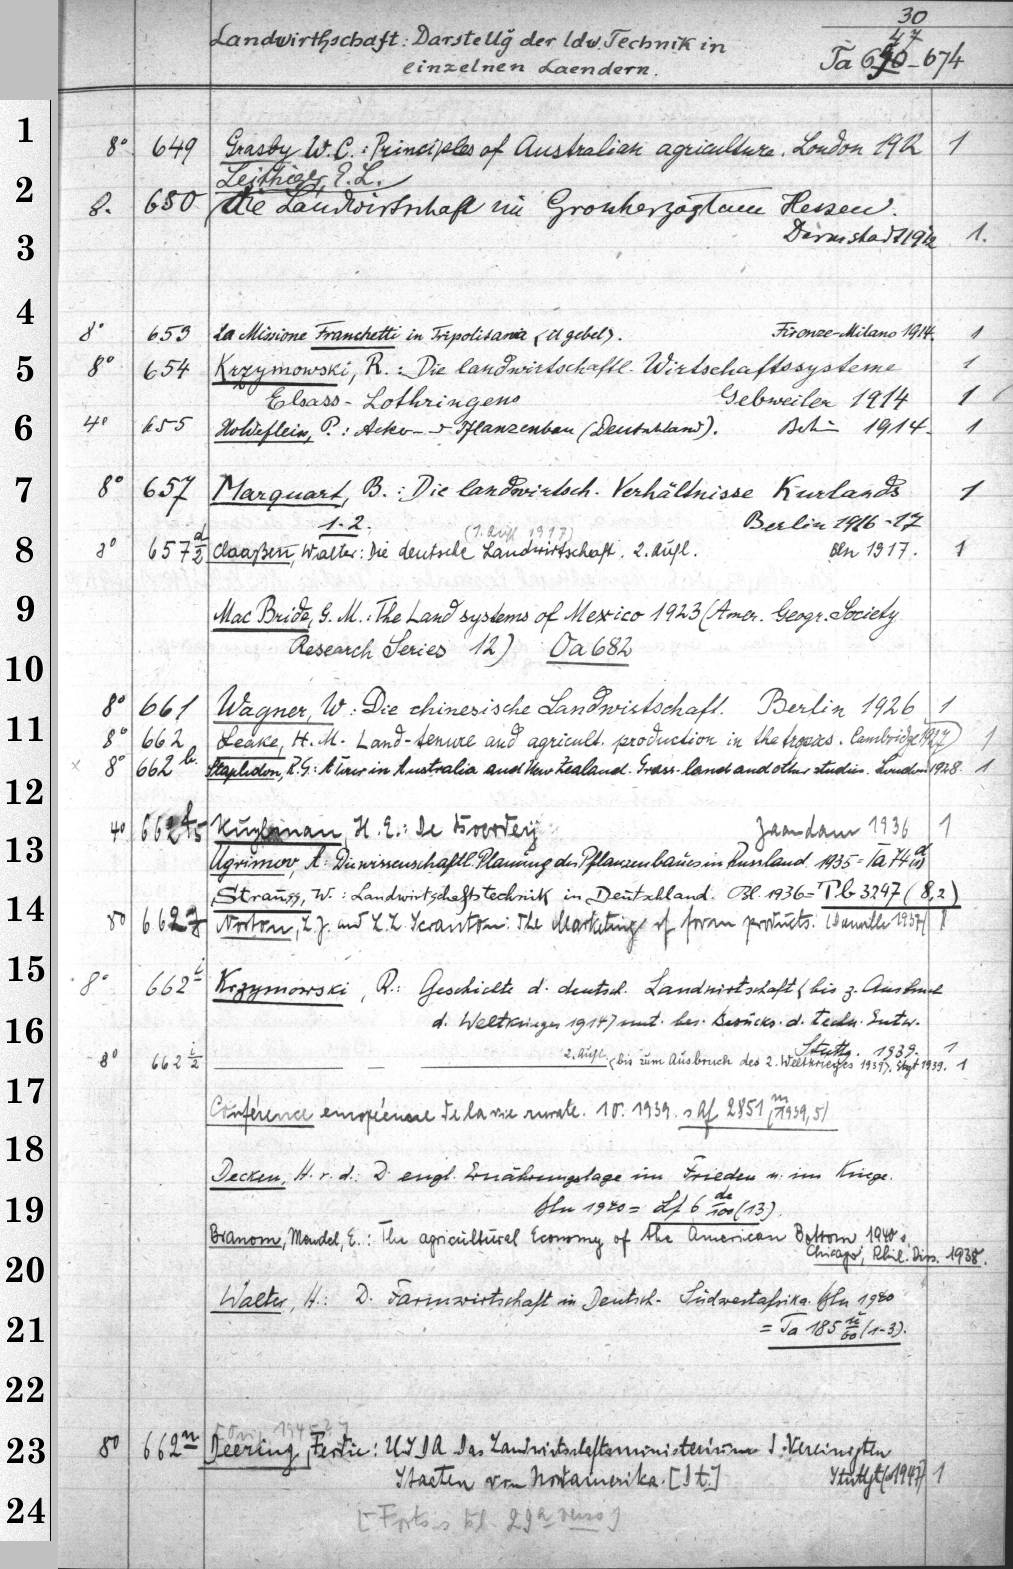 30
47
Landwirthschaft: Darstellg der ldw. Technik in
einzelnen Laendern.
Ta 650-674
1
8° 649 Grasby W. C.: Principles of Australian agriculture. London 1912 1
Leithiger, E. L.
2
8. 650 Die Landwirtschaft im Grossherzogtum Hessen.
Darmstadt 1912 1.
3
4
8° 653 La Missione Franchetti in Tripolitania (Il gebel). Firenze-Milano 1914. 1
5
8° 654 Krzymowski, R.: Die landwirtschaftl. Wirtschaftssysteme 1
Elsass-Lothringens Gebweiler 1914 1
6
4° 655 Holdefleiss, P.: Acker- u Pflanzenbau (Deutschland). Berlin 1914. 1
7
8° 657 Marquart, B.: Die landwirtsch. Verhältnisse Kurlands 1
1-2. Berlin 1916-17
(1. Aufl 1917)
8
8° 657 d/2 Claaßen, Walter: Die deutsche Landwirtschaft. 2. Aufl. Bln 1917. 1
9
Mac Bride, G. M.: The Land systems of Mexico 1923 (Amer. Geogr. Society
Research Series 12) Oa 682
10
8° 661 Wagner, W.: Die chinesische Landwirtschaft. Berlin 1926 1
11
8° 662 Leake, H. M. Land-tenure and agricult. production in the tropics. Cambridge 1927 1
x 8° 662 b Stapledon, R. G.: A tour in Australia and New Zealand. Grass-land and other studies. London 1928. 1
12
4° 662 Kuyleman, H. E.: De Zaandam 1936 1
13
Ugrimov, A: Die wissenschaftl. Planung des Pflanzenbaues in Russland 1935 = Ta 74
Strauss, W.: Landwirtschaftstechnik in Deutschland. Bl. 1936 = Pb 3297 (8,2)
14
8° 662 Norton, L. J. and L. L. Scranton: The Marketing of farm products. (Danville 1937) 1
15
8° 662 i Krzymowski, R.: Geschichte d. deutsch. Landwirtschaft (bis z. Ausbruch
d. Weltkrieges 1914) unt. bes. Berücks. d. techn. Entw.
16
Stuttg. 1939. 1
8° 662 i/2 2. Aufl. (bis zum Ausbruch des 2. Weltkrieges 1939). Stgt 1939. 1
17
Conférence européenne de la vie rurale. 10. 1939. s Af 2851 m (1939,5)
18
Decken, H. v. d.: D. engl. Ernährungslage im Frieden u. im Kriege.
19
Bln 1940 = Lf 6 de/100 (13).
Branom, Mendel, E.: The agricultural Economy of the American Bottom 1940
20
Chicago, Phil. Diss. 1938.
Walter, H.: D. Farmwirtschaft in Deutsch-Südwestafrika. Bln 1940
21
= Ta 185 (1-3).
22
23
8° 662 n Deering, Ferdie: USDA Das Landwirtschaftsministerium d. Vereinigten
Staaten von Nordamerika. [Dt.] Stuttgt (1947) 1
24
[Forts. s Bl. 29 a verso]